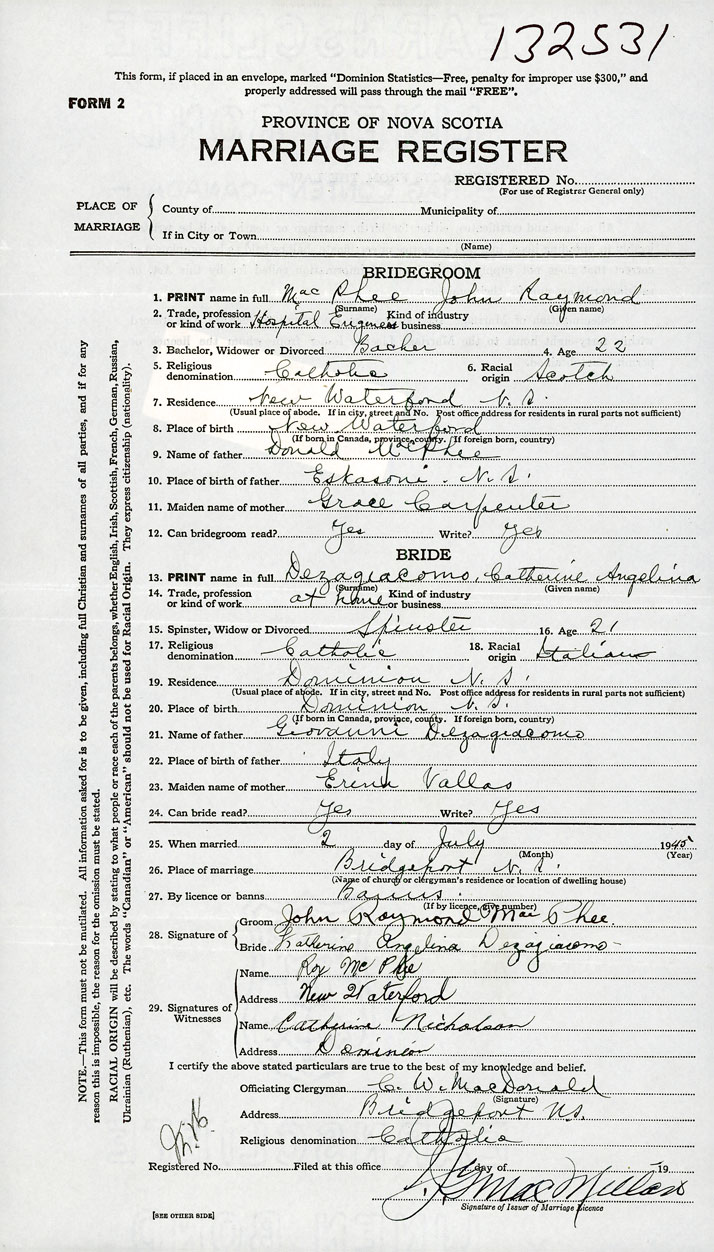 132531
This form, if placed in an envelope, marked "Dominion Statistics—Free, penalty for improper use $300," and
properly addressed will pass through the mail "FREE".
FORM 2
PROVINCE OF NOVA SCOTIA
MARRIAGE REGISTER
REGISTERED No.
(For use of Registrar General only)
PLACE OF MARRIAGE
County of Municipality of
If in City or Town
(Name)
BRIDEGROOM
1. PRINT name in full Mac Phee John Raymond
(Surname) (Given name)
2. Trade, profession or kind of work Hospital Engineer Kind of industry or business
3. Bachelor, Widower or Divorced Bacher 4. Age 22
5. Religious denomination Catholic 6. Racial origin Scotch
7. Residence New Waterford N. S.
(Usual place of abode. If in city, street and No. Post office address for residents in rural parts not sufficient)
8. Place of birth New Waterford
(If born in Canada, province, county. If foreign born, country)
9. Name of father Donald MacPhee
10. Place of birth of father Eskasoni. N. S.
11. Maiden name of mother Grace Carpenter
12. Can bridegroom read? Yes Write? Yes
BRIDE
13. PRINT name in full Dezagiacomo, Catherine Angelina
(Surname) (Given name)
14. Trade, profession or kind of work at home Kind of industry or business
15. Spinster, Widow or Divorced Spinster 16. Age 21
17. Religious denomination Catholic 18. Racial origin Italian
19. Residence Dominion N. S.
(Usual place of abode. If in city, street and No. Post office address for residents in rural parts not sufficient)
20. Place of birth Dominion N. S.
(If born in Canada, province, county. If foreign born, country)
21. Name of father Giovanni Dezagiacomo
22. Place of birth of father Italy
23. Maiden name of mother Erina Vallas
24. Can bride read? Yes Write? Yes
25. When married 2 day of July 1945
(Month) (Year)
26. Place of marriage Bridgeport N. S.
(Name of church or clergyman's residence or location of dwelling house)
27. By licence or banns Banns
(If by licence, give number)
28. Signature of
Groom John Raymond Mac Phee.
Bride Katherine Angelina Dezagiacomo
29. Signatures of Witnesses
Name Roy McPhee
Address New Waterford
Name Catherine Nicholson
Address Dominion
I certify the above stated particulars are true to the best of my knowledge and belief.
Officiating Clergyman C. W. MacDonald
(Signature)
Address Bridgeport N.S.
Religious denomination Catholic
Registered No. Filed at this office day of 19
MacMillan
Signature of Issuer of Marriage Licence
[SEE OTHER SIDE]
NOTE.—This form must not be mutilated. All information asked for is to be given, including full Christian and surnames of all parties, and if for any
reason this is impossible, the reason for the omission must be stated.
RACIAL ORIGIN will be described by stating to what people or race each of the parents belongs, whether English, Irish, Scottish, French, German, Russian,
Ukrainian (Ruthenian), etc. The words "Canadian" or "American" should not be used for Racial Origin. They express citizenship (nationality).